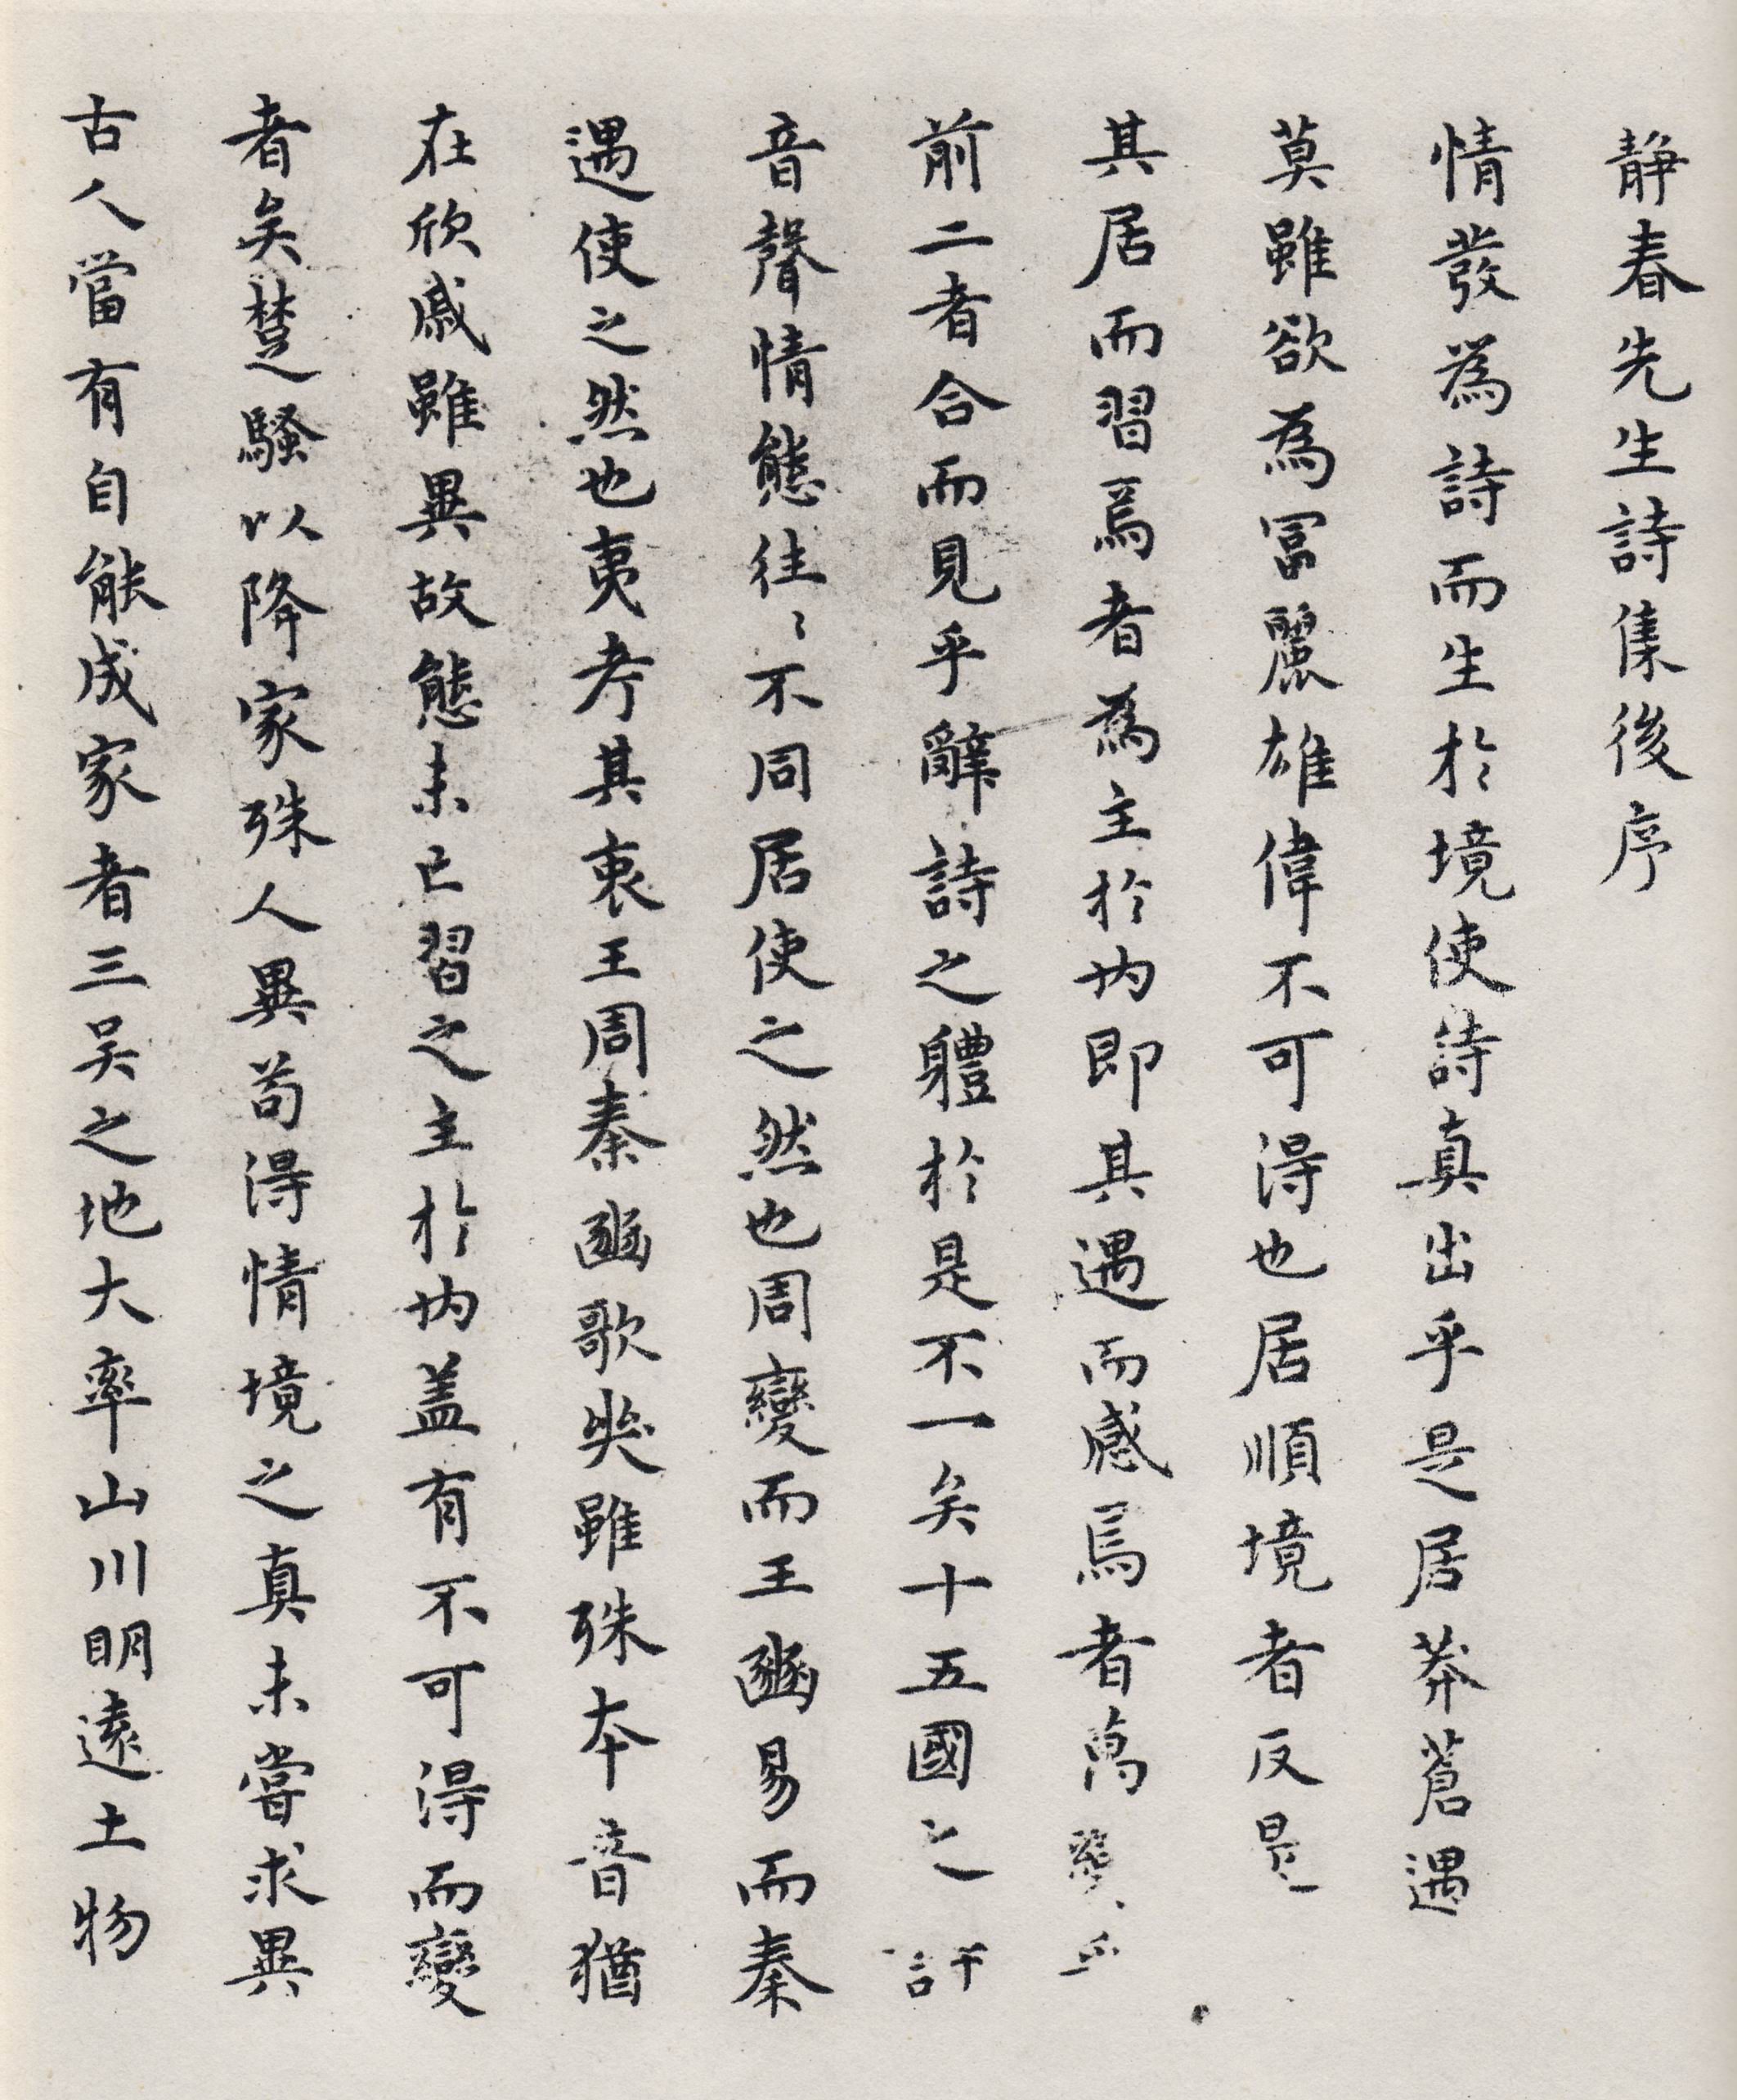 靜春先生詩集後序
情發為詩而生於境使詩真出乎是居莽蒼遇
莫雖欲為冨麗雄偉不可得也居順境者反是
其居而習焉者為主於內即其遇而感焉者萬變
前二者合而見乎辭詩之軆於是不一矣十五國之詩
音聲情態往〻不同居使之然也周變而王豳易而秦
遇使之然也夷考其衷王周秦豳歌哭雖殊本音猶
在欣戚雖異故態未亡習之主於內盖有不可得而變
者矣楚騷以降家殊人異苟得情境之真未嘗求異
古人當有自能成家者三吴之地大率山川明遠土物